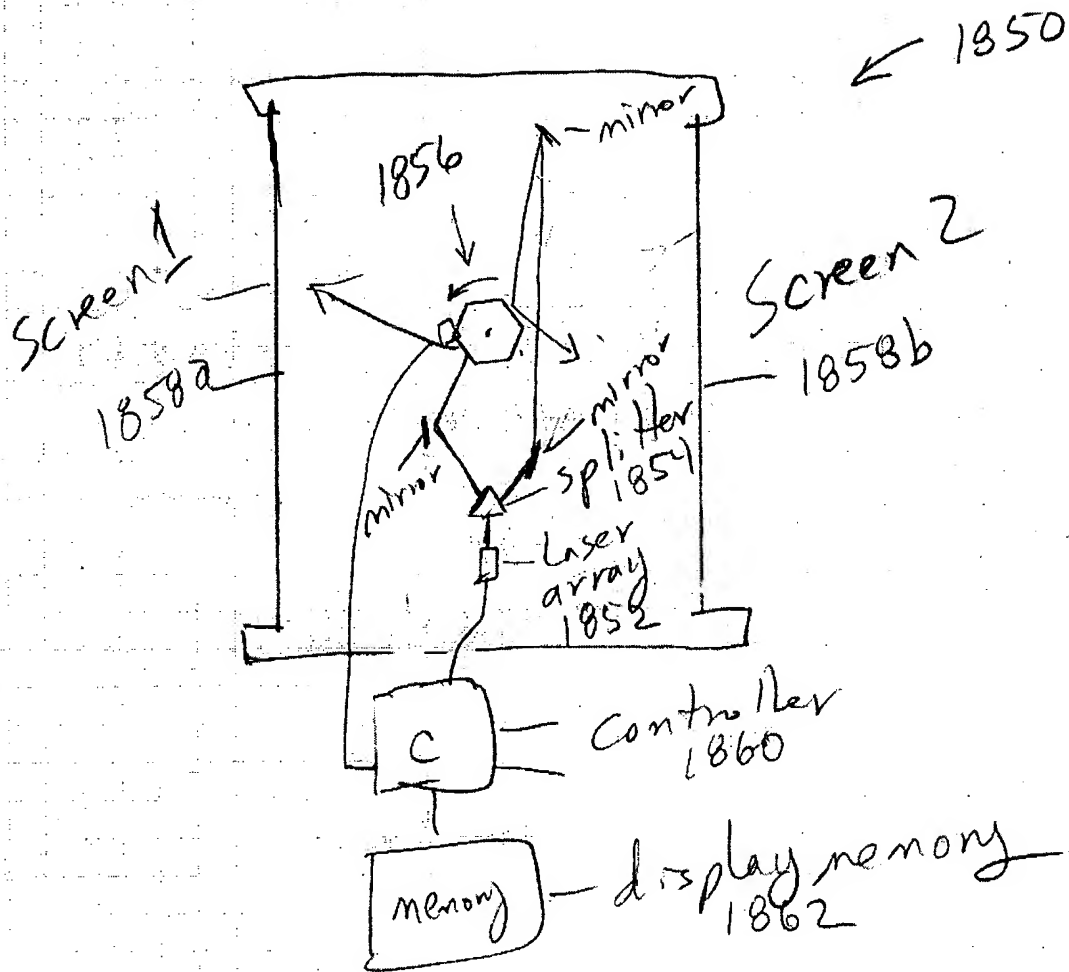 1850
mirror
1856
Screen 1
1858a
Screen 2
1858b
mirror
splitter
1854
mirror
Laser
array
1852
C
Controller
1860
memory
display memory
1862